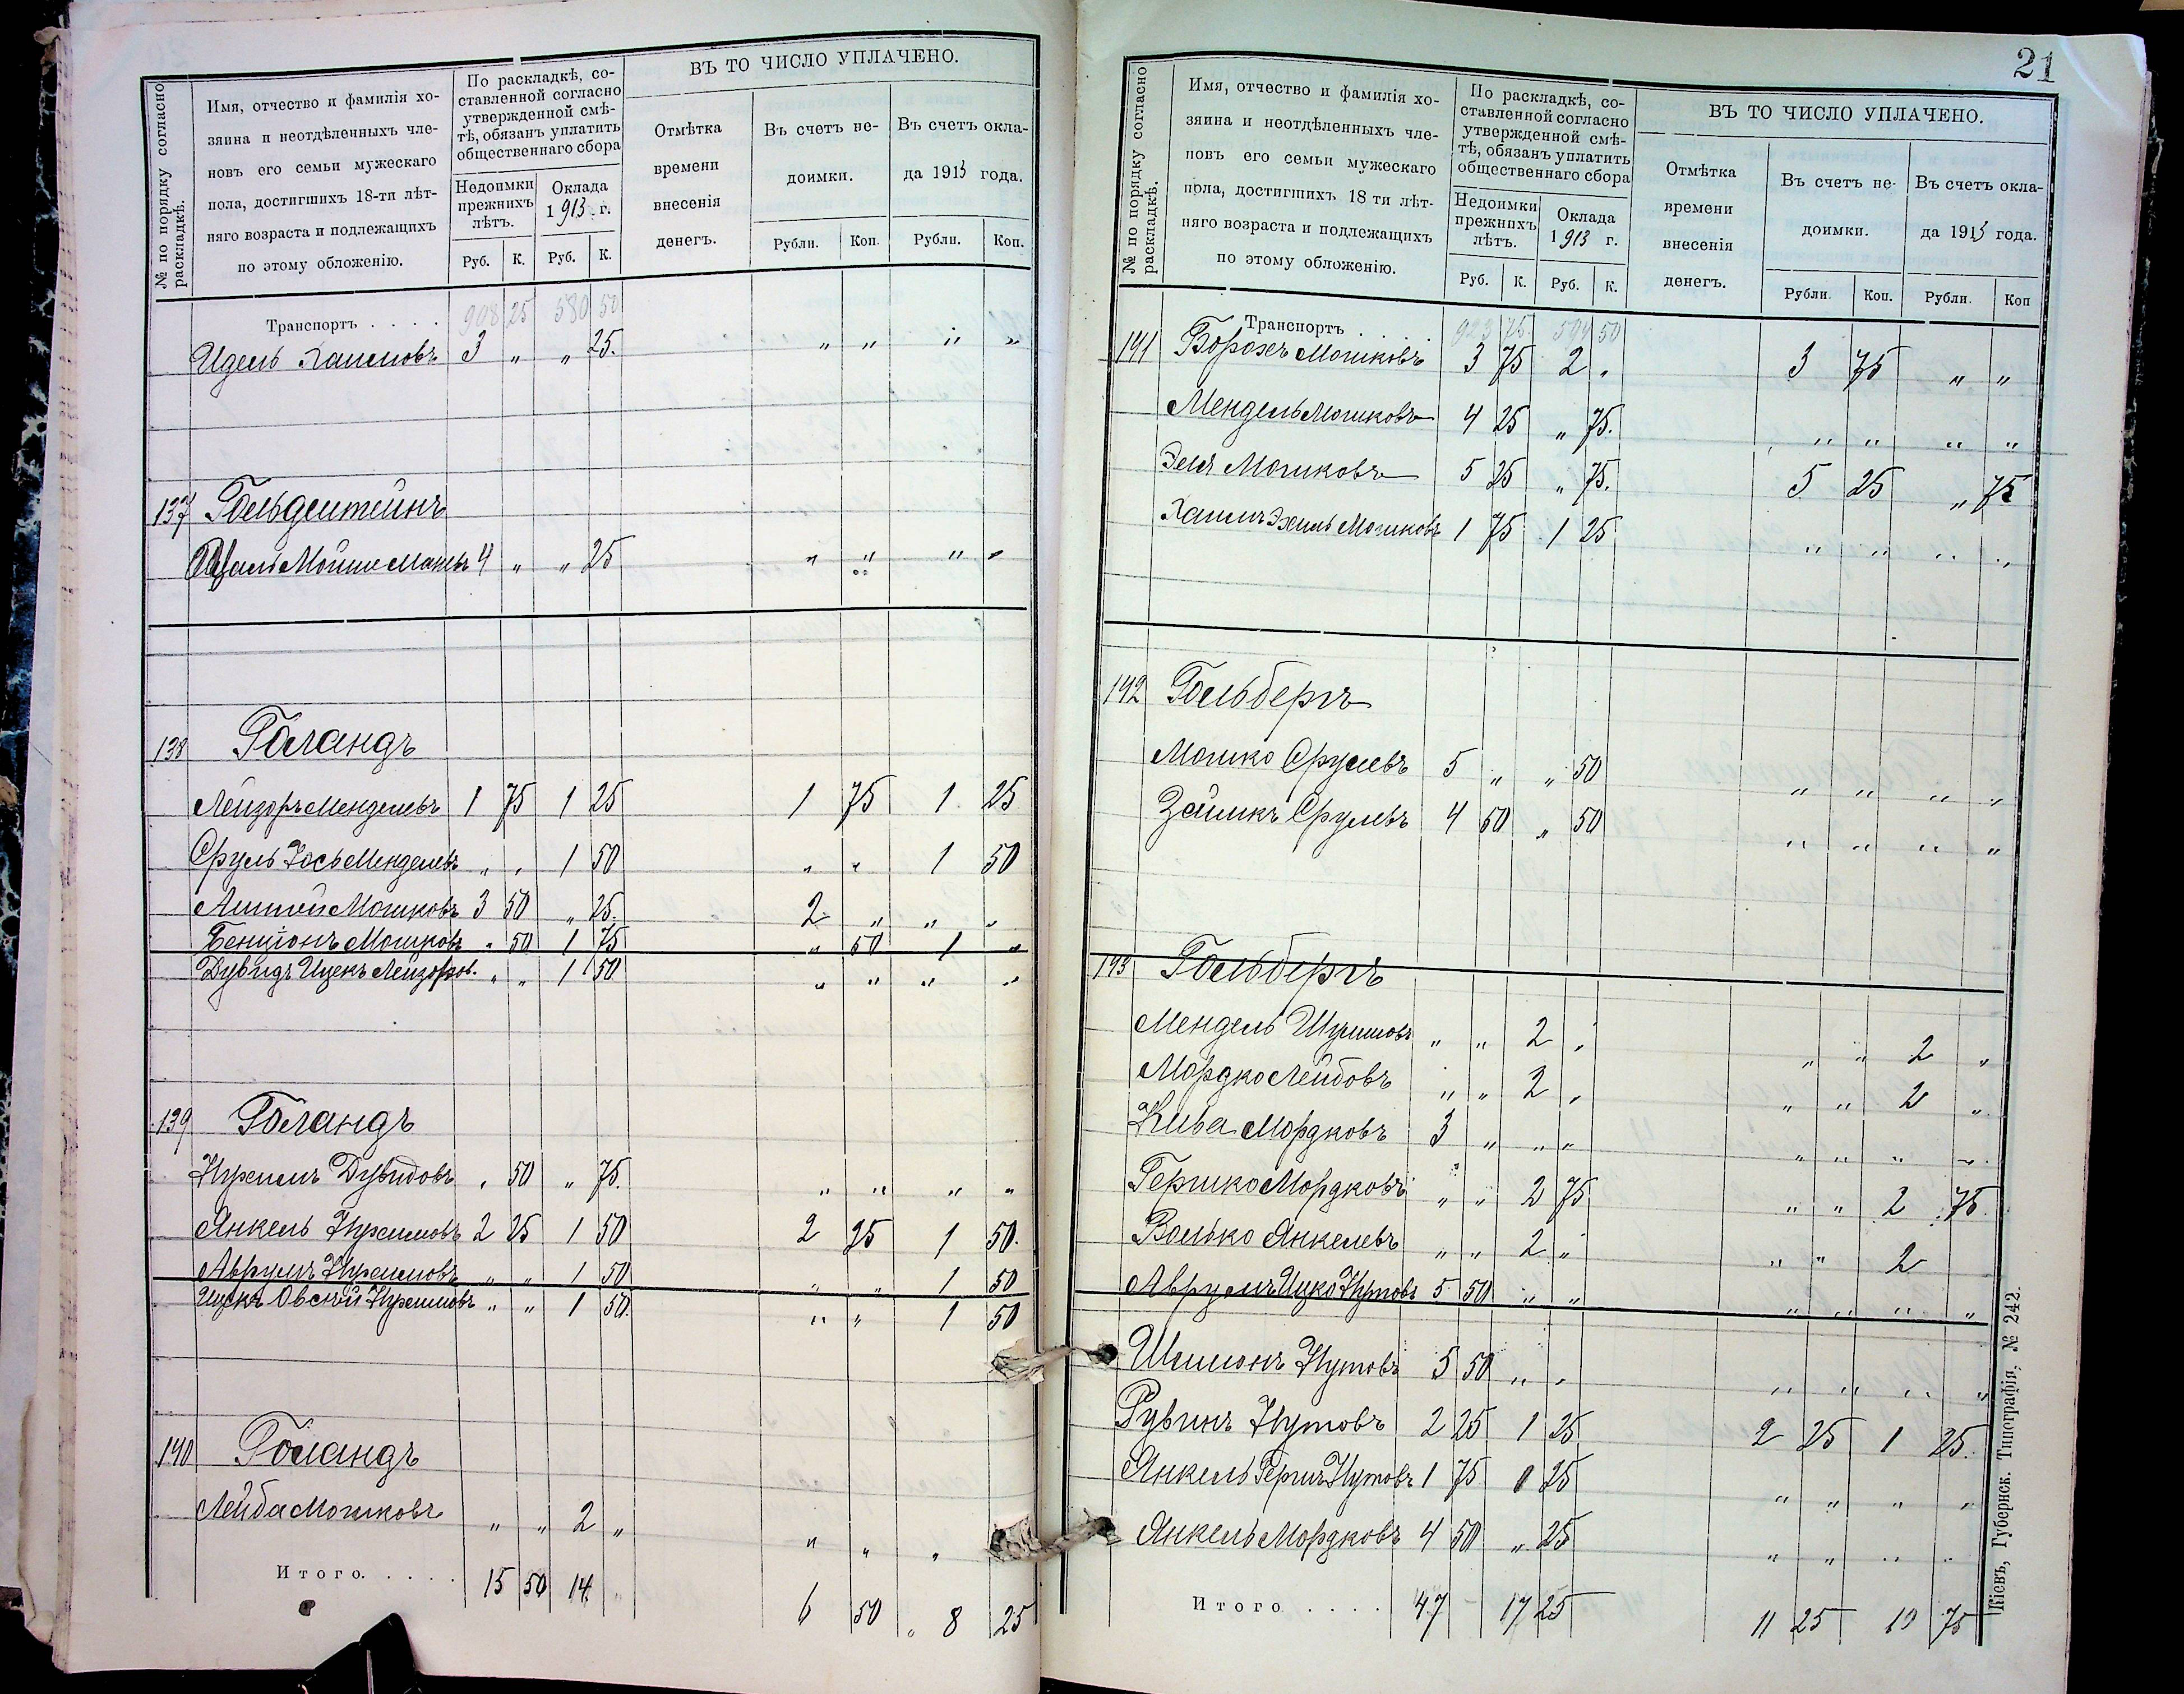 № по порядку согласно раскладкѣ.
Имя, отчество и фамилія хо-
зяина и неотдѣленныхъ чле-
новъ его семьи мужескаго
пола, достигшихъ 18-ти лѣт-
няго возраста и подлежащихъ
по этому обложенію.
По раскладкѣ, со-
ставленной согласно
утвержденной смѣ-
тѣ, обязанъ уплатить
общественнаго сбора
Недоимки
прежнихъ
лѣтъ.
Оклада
1913 г.
Руб. К. Руб. К.
ВЪ ТО ЧИСЛО УПЛАЧЕНО.
Отмѣтка
времени
внесенія
денегъ.
Въ счетъ не-
доимки.
Въ счетъ окла-
да 1913 года.
Рубли. Коп. Рубли. Коп.
Транспортъ . . . . 908 25 580 50
Идель Хаимовъ 3 „ „ 25. „ „ „ „
137 Гольдштейнъ
Мойше 4 „ „ 25 „ „ „ „
138 Голандъ
Лейзоръ Менделевъ 1 75 1 25 1 75 1 25
Сруль Іось Менделевъ „ „ 1 50 „ „ 1 50
Мошковъ 3 50 „ 25. 2 „ „ „
Бенціонъ Мошковъ „ 50 1 75 „ 50 1 „
Дувидъ Ицекъ Лейзоров. „ „ 1 50 „ „ „ „
139 Голандъ
Нухимъ Дувидовъ „ 50 „ 75. „ „ „ „
Янкель Нухимовъ 2 25 1 50 2 25 1 50.
Аврумъ Нухимовъ „ „ 1 50 „ „ 1 50
Ицекъ Овсѣй Нухимовъ „ „ 1 50. „ „ 1 50
140 Голандъ
Лейба Мошковъ „ „ 2 „ „ „ „
Итого. . . . . 15 50 14 „ 6 50 „ 8 25
21
№ по порядку согласно раскладкѣ.
Имя, отчество и фамилія хо-
зяина и неотдѣленныхъ чле-
новъ его семьи мужескаго
пола, достигшихъ 18 ти лѣт-
няго возраста и подлежащихъ
по этому обложенію.
По раскладкѣ, со-
ставленной согласно
утвержденной смѣ-
тѣ, обязанъ уплатить
общественнаго сбора
Недоимки
прежнихъ
лѣтъ.
Оклада
1913 г.
Руб. К. Руб. К.
ВЪ ТО ЧИСЛО УПЛАЧЕНО.
Отмѣтка
времени
внесенія
денегъ.
Въ счетъ не-
доимки.
Въ счетъ окла-
да 1913 года.
Рубли. Коп. Рубли. Коп
Транспортъ . . . . 923 75 594 50
141 Борохъ Мошковъ 3 75 2 „ 3 75 „ „
Мендель Мошковъ 4 25 „ 75. „ „ „ „
Эля Мошковъ 5 25 „ 75. 5 25 „ 75
Хаимъ Эхиль Мошковъ 1 75 1 25 „ „ „ „
142 Гольбергъ
Мошко Срулевъ 5 „ „ 50 „ „ „ „
Зайликъ Срулевъ 4 50 „ 50 „ „ „ „
143 Гольбергъ
Мендель Шулимовъ „ „ 2 „ „ „ 2 „
Мордко Лейбовъ „ „ 2 „ „ „ 2 „
Кива Мордковъ 3 „ „ „ „ „ „ „
Гершко Мордковъ „ „ 2 75 „ „ 2 75
Волько Янкелевъ „ „ 2 „ „ „ 2
Аврумъ Ицко Нутовъ 5 50 „ „ „ „ „ „
Шлимонъ Нутовъ 5 50 „ „ „ „ „ „
Рувинъ Нутовъ 2 25 1 25 2 25 1 25.
Янкель Гершъ Нутовъ 1 75 0 25 „ „ „ „
Янкель Мордковъ 4 50 „ 25 „ „ „ „
Итого . . . . 47 - 17 25 11 25 10 75
Кіевъ, Губернск. Типографія, № 242.